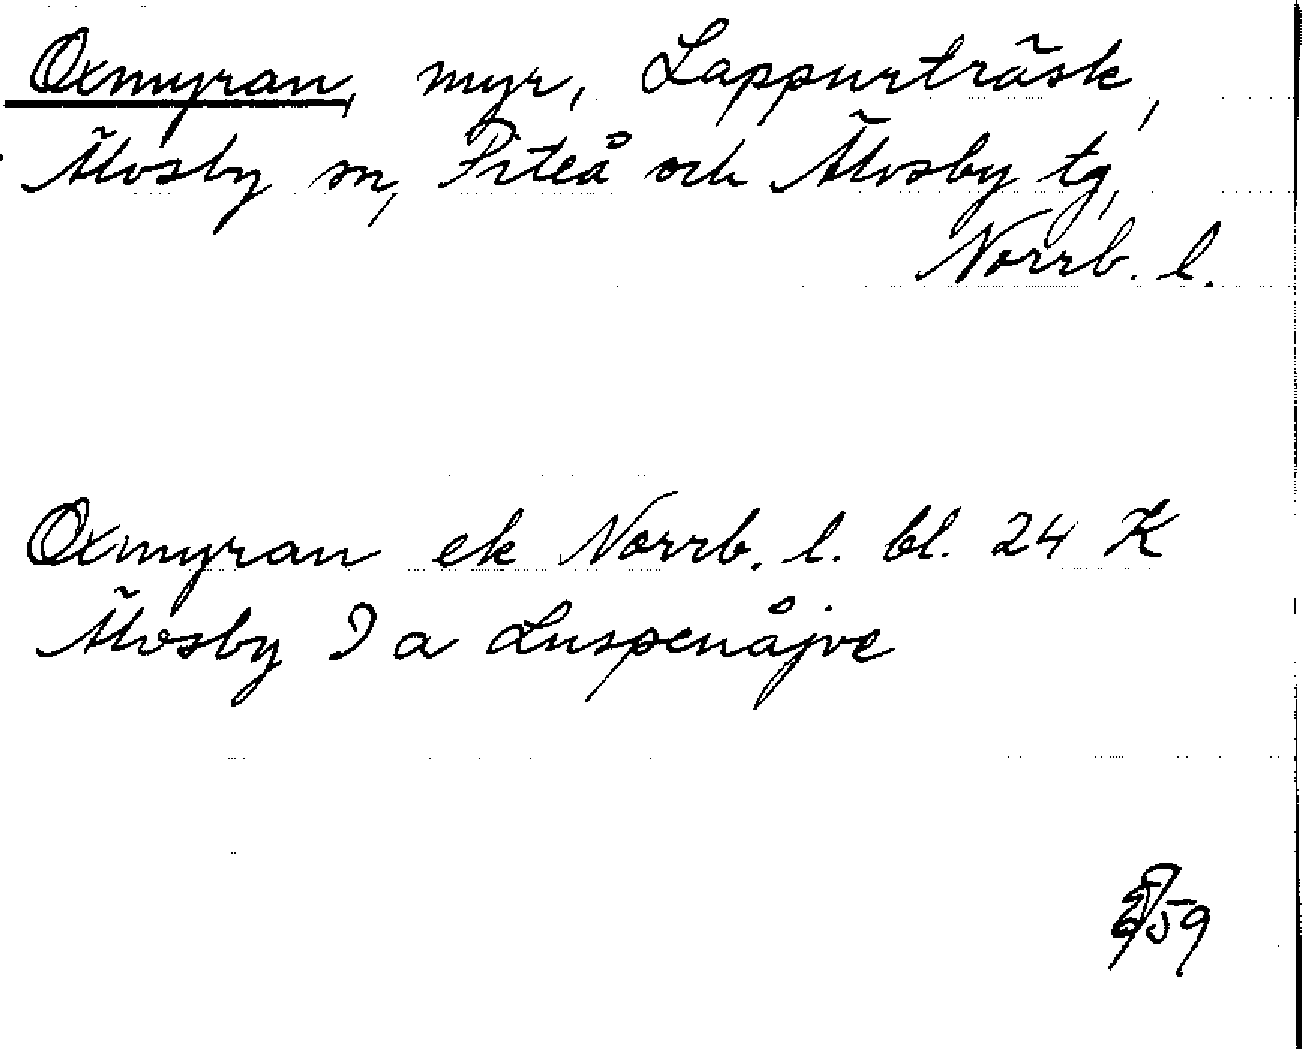 Oxmyran, myr, Lappurträsk,
Älvsby sn, Piteå och Älvsby tg,
Norrb. l.
Oxmyran ek Norrb. l. bl. 24 K
Älvsby I a Luspenåjve
59